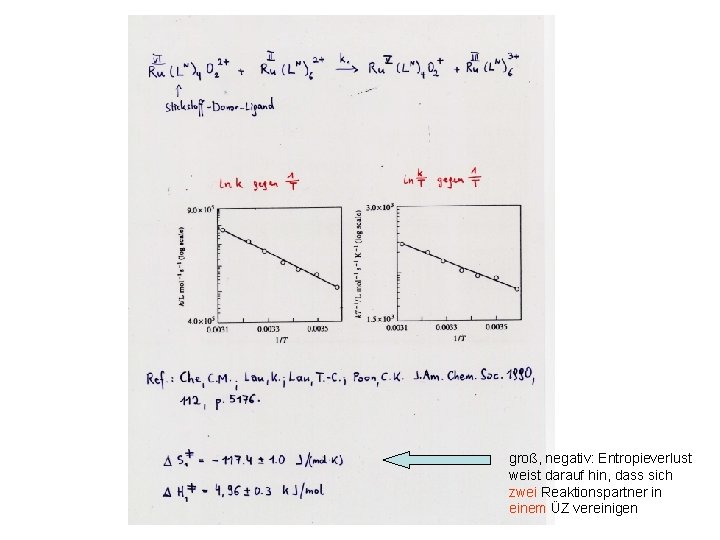 VI II k₁ V III
Ru (Lᴺ)₄ O₂²⁺ + Ru (Lᴺ)₆²⁺ → Ru (Lᴺ)₄O₂⁺ + Ru (Lᴺ)₆³⁺
↑
Stickstoff-Donor-Ligand
ln k gegen 1/T
ln k/T gegen 1/T
9.0 × 10⁵
k/L mol⁻¹ s⁻¹ (log scale)
4.0 × 10⁵
0.0031 0.0033 0.0035
1/T
3.0 × 10³
kT⁻¹/L mol⁻¹ s⁻¹ K⁻¹ (log scale)
1.5 × 10³
0.0031 0.0033 0.0035
1/T
Ref.: Che, C.M.; Lau, K.; Lau, T.-C.; Poon, C.K. J. Am. Chem. Soc. 1990,
112, p. 5176.
Δ S₁‡ = - 117.4 ± 1.0 J/(mol·K)
Δ H₁‡ = 4,96 ± 0.3 kJ/mol
groß, negativ: Entropieverlust
weist darauf hin, dass sich
zwei Reaktionspartner in
einem ÜZ vereinigen